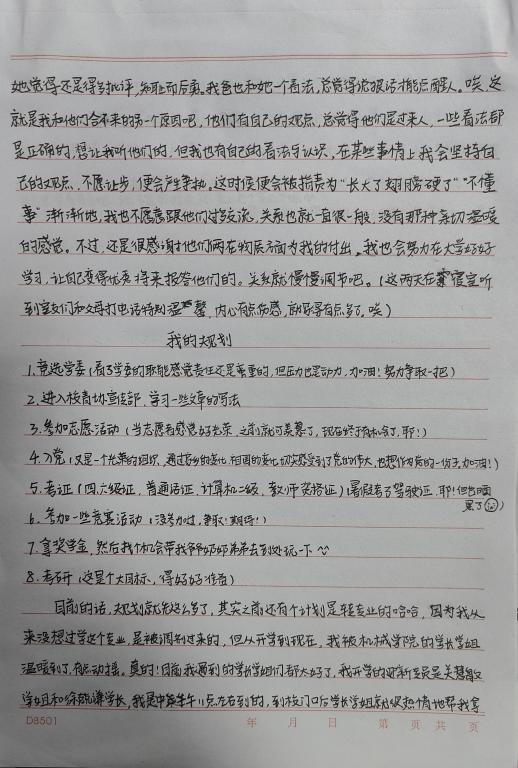 她觉得还是得多批评，知耻而后勇。我爸也和她一个看法，总觉得说狠话才能点醒人。唉，这
就是我和他们合不来的另一个原因吧，他们有自己的观点，总觉得他们是过来人，一些看法都
是正确的，想让我听他们的，但我也有自己的看法与认识，在某些事情上我会坚持自
己的观点，不愿让步，便会产生争执。这时侯便会被指责为"长大了翅膀硬了""不懂
事"渐渐地，我也不愿意跟他们过多交流，关系也就一直很一般，没有那种亲切温暖
的感觉。不过，还是很感谢他们两在物质方面为我的付出。我也会努力在大学好好
学习，让自己变得优秀将来报答他们的。关系就慢慢调节吧。（这两天在寝室听
到室友们和父母打电话特别温馨，内心有点伤感，就写得有点多了，唉）
我的规划
1.竞选学委（看了学委的职能感觉责任还是蛮重的，但压力也是动力，加油！努力争取一把）
2.进入校青协宣传部，学习一些文章的写法
3.参加志愿活动（当志愿者感觉好光荣，之前就可羡慕了，现在终于有机会了，耶！）
4.入党（又是一个光荣的组织，通过家乡的变化、祖国的变化切实感受到了党的伟大，也想作为党的一份子，加油！）
5.考证（四、六级证，普通话证，计算机二级，教师资格证）（暑假考了驾驶证，耶！但也晒
黑了）
6.参加一些竞赛活动（没参加过，争取！期待！）
7.拿奖学金，然后找个机会带我爷奶奶弟弟去到处玩一下～
8.考研（这是个大目标，得好好准备）
目前的话，规划就这么多了，其实之前还有个计划是转专业的哈哈，因为我从
来没想过学这个专业，是被调剂过来的，但从开学到现在，我被机械学院的学长学姐
温暖到了，有点动摇。真的！目前我遇到的学长学姐们都太好了，我开学的迎新专员是关慧敏
学姐和徐毓谦学长，我是中午11点左右到的，到校门口后学长学姐就很热情地帮我拿
D8501 年 月 日 第 页 共 页